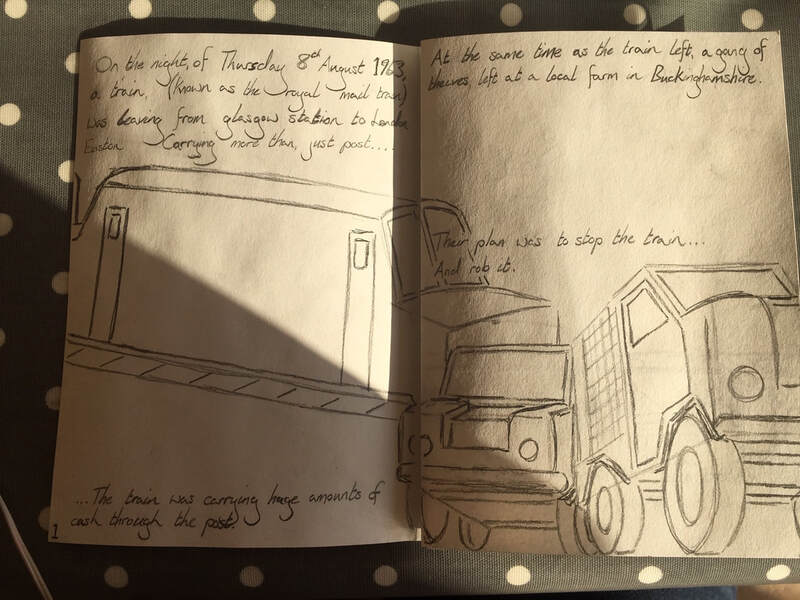 On the night, of Thursday 8th August 1963,
a train, (known as the royal mail train)
was leaving from glasgow station to London
Easton Carrying more than, just post....
...The train was carrying huge amounts of
cash through the post.
1
At the same time as the train left, a gang of
theives, left at a local farm in Buckinghamshire.
Their plan was to stop the train...
And rob it.